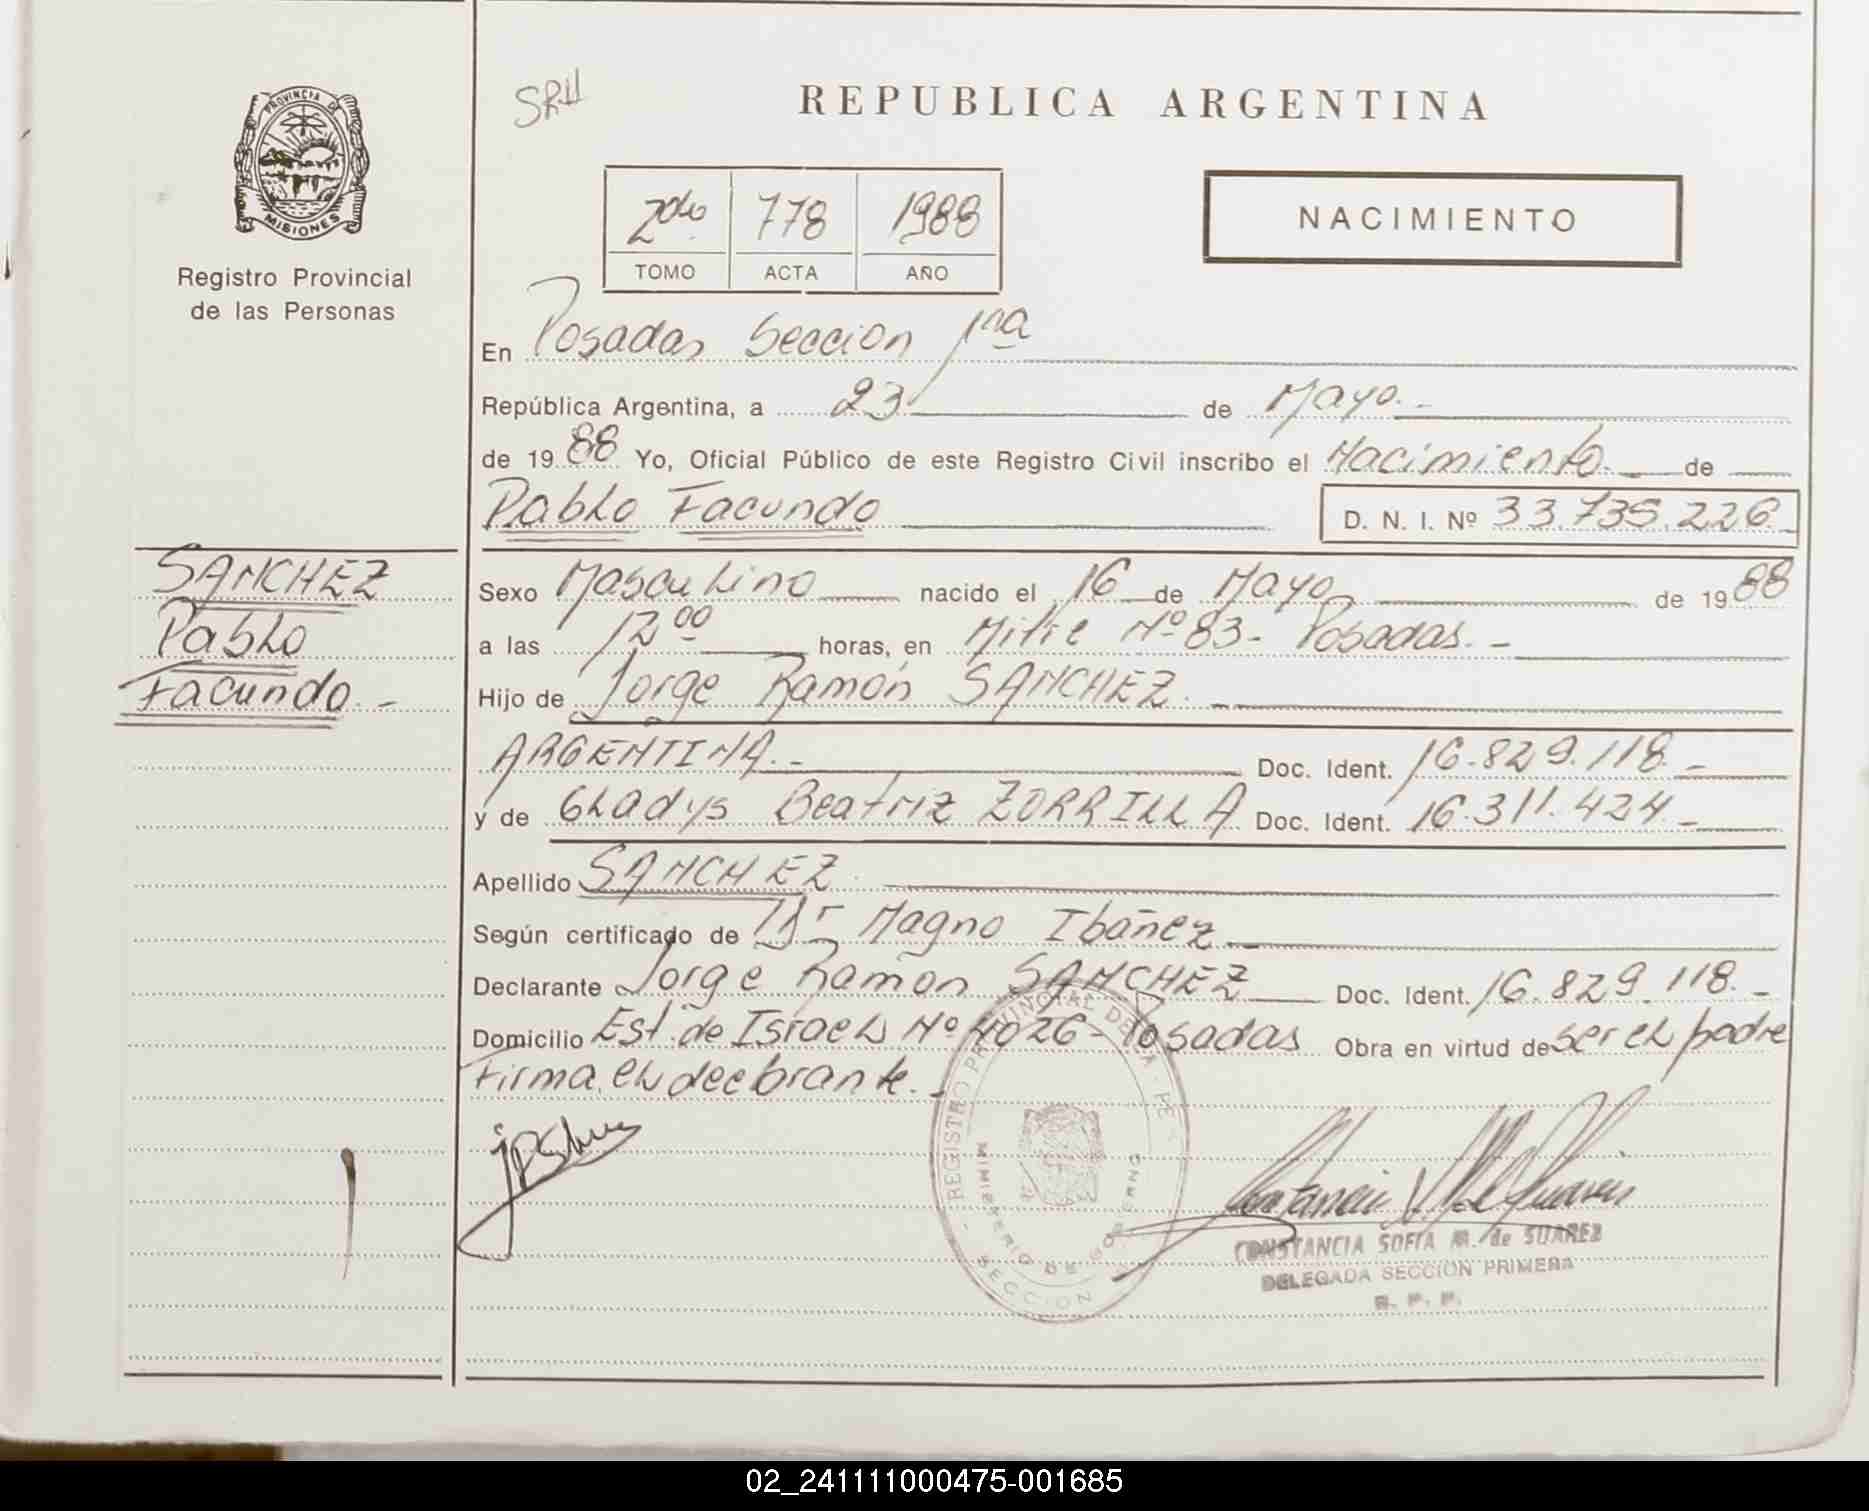 PROVINCIA DE
MISIONES
Registro Provincial
de las Personas
SANCHEZ
Pablo
Facundo.-
SRH
REPUBLICA ARGENTINA
2do 778 1988
TOMO ACTA AÑO
NACIMIENTO
En Posadas Seccion 1ra
República Argentina, a 23 de Mayo.-
de 1988 Yo, Oficial Público de este Registro Civil inscribo el Nacimiento.- de
Pablo Facundo D. N. I. Nº 33.735.226
Sexo Masculino nacido el 16 de Mayo de 1988
a las 12 00 horas, en Mitre Nº 83- Posadas.-
Hijo de Jorge Ramón SANCHEZ.-
ARGENTINA.- Doc. Ident. 16.829.118.-
y de Gladys Beatriz ZORRILLA Doc. Ident. 16.311.424.-
Apellido SANCHEZ.
Según certificado de Dr Magno Ibáñez
Declarante Jorge Ramón SANCHEZ Doc. Ident. 16.829.118.-
Domicilio Est. de Israel Nº 4026- Posadas Obra en virtud de ser el padre
Firma el declarante.-
REGISTRO PROVINCIAL DE LA PE
MINISTERIO DE GOBIERNO
SECCION
CONSTANCIA SOFIA M. de SUAREZ
DELEGADA SECCION PRIMERA
R. P. P.
02_241111000475-001685